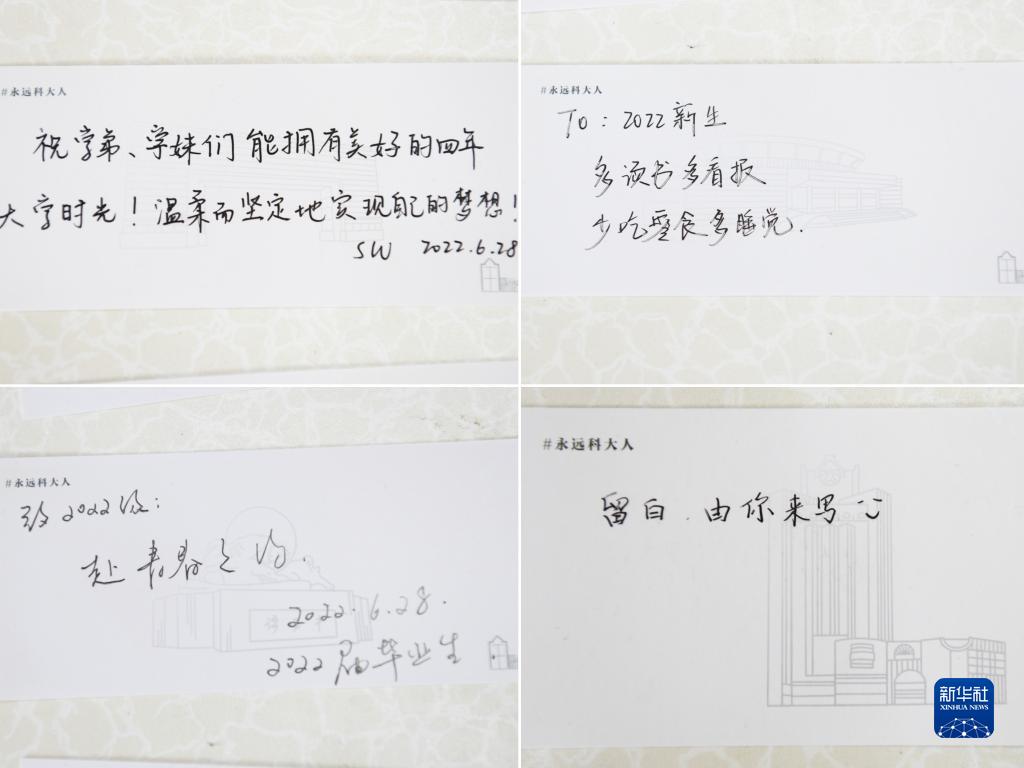 #永远科大人
祝学弟、学妹们能拥有美好的四年
大学时光！温柔而坚定地实现自己的梦想！
SW 2022.6.28
#永远科大人
TO：2022新生
多读书多看报
少吃零食多睡觉.
#永远科大人
致2022级：
赴青春之约.
2022.6.28.
2022届毕业生
#永远科大人
留白.由你来写
新华社
XINHUA NEWS